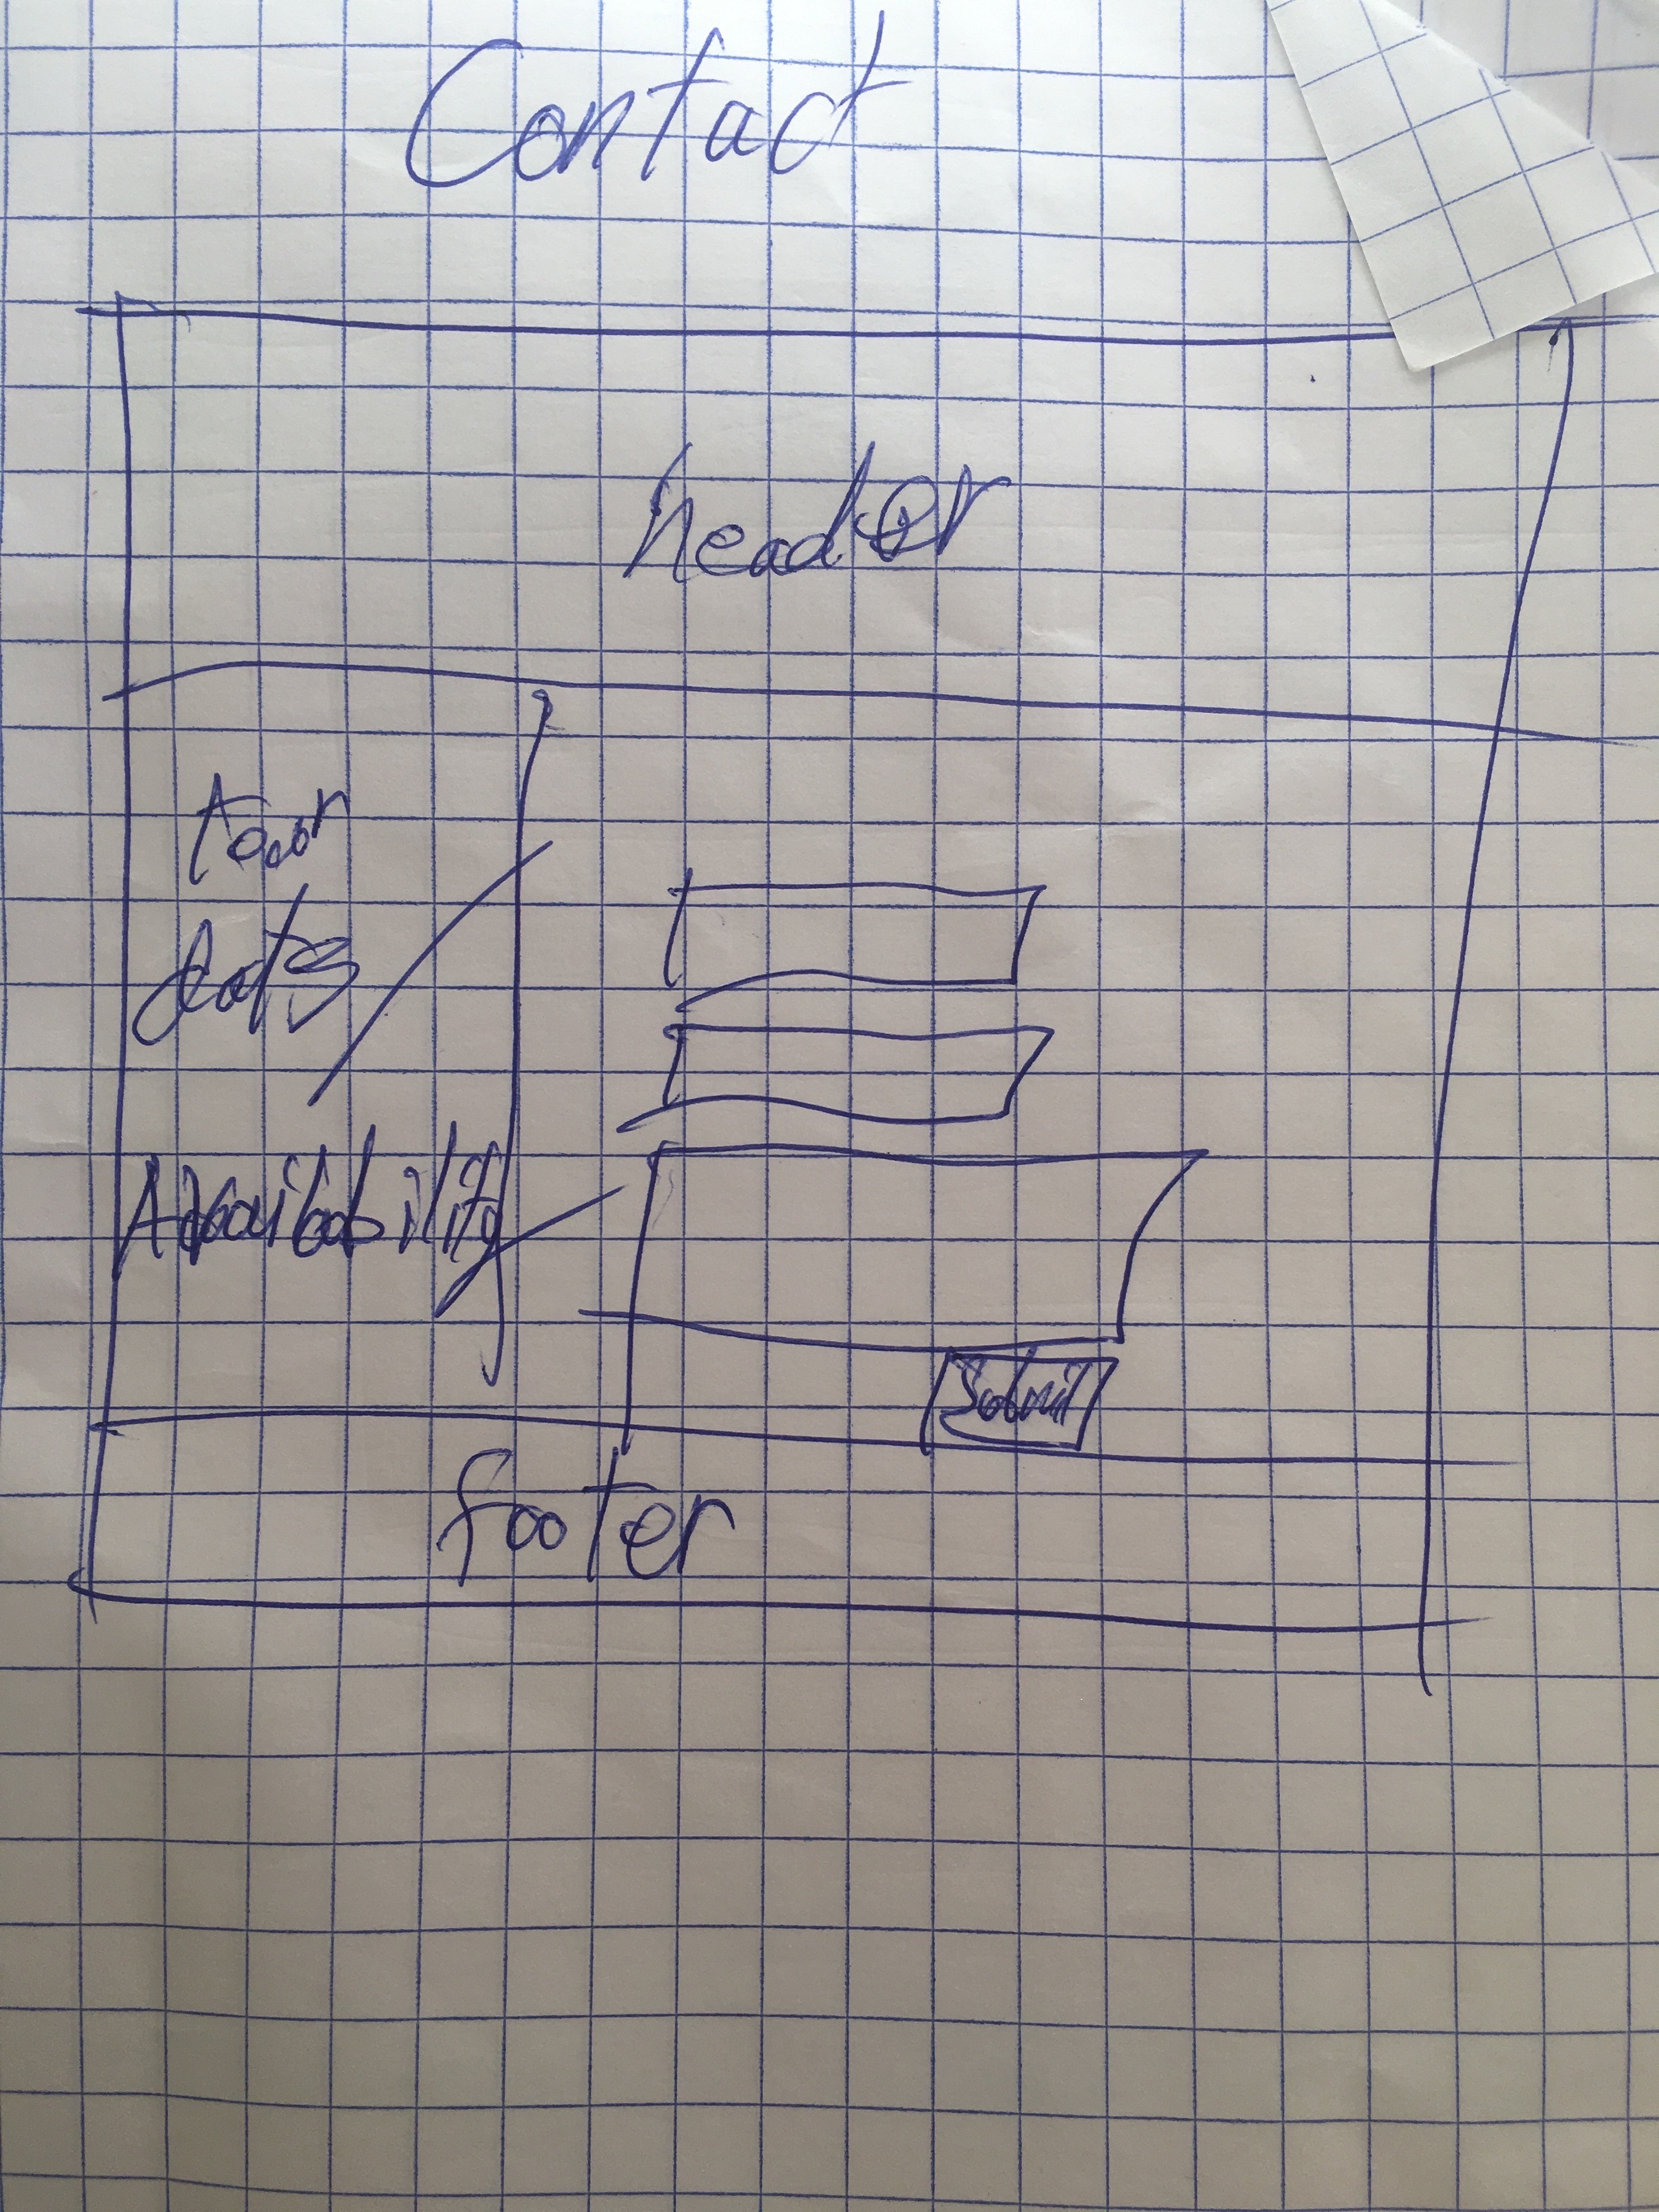 Contact
header
tour
dats
Availability
Submit
footer